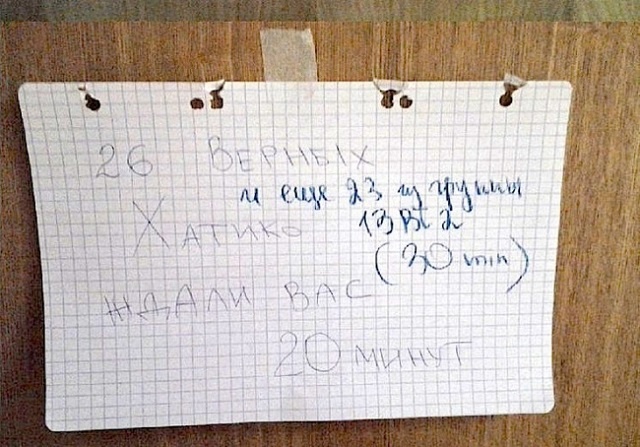 26 ВЕРНЫХ
и еще 23 из группы
ХАТИКО 13Вt2
(30 min)
ЖДАЛИ ВАС
20 МИНУТ